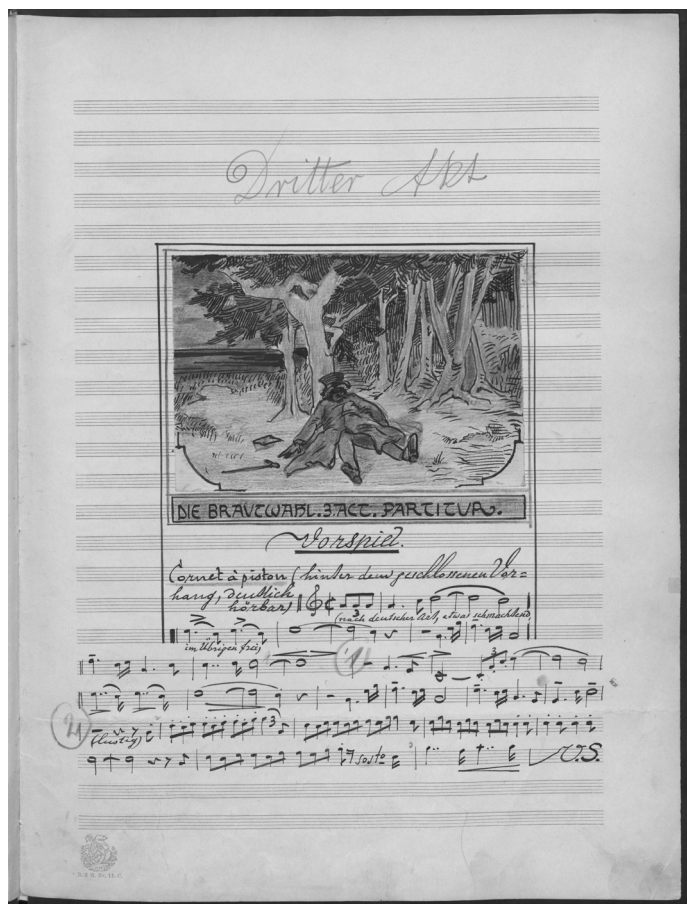 Dritter Akt
DIE BRAUTWAHL. 3. ACT. PARTITUR.
Vorspiel.
Cornet à piston (hinter dem geschlossenen Vor=
hang, deutlich
hörbar)
(nach deutscher Art, etwas schmachtend,
im Übrigen frei)
1
3
21
(lustig)
3
sosto
V.S.